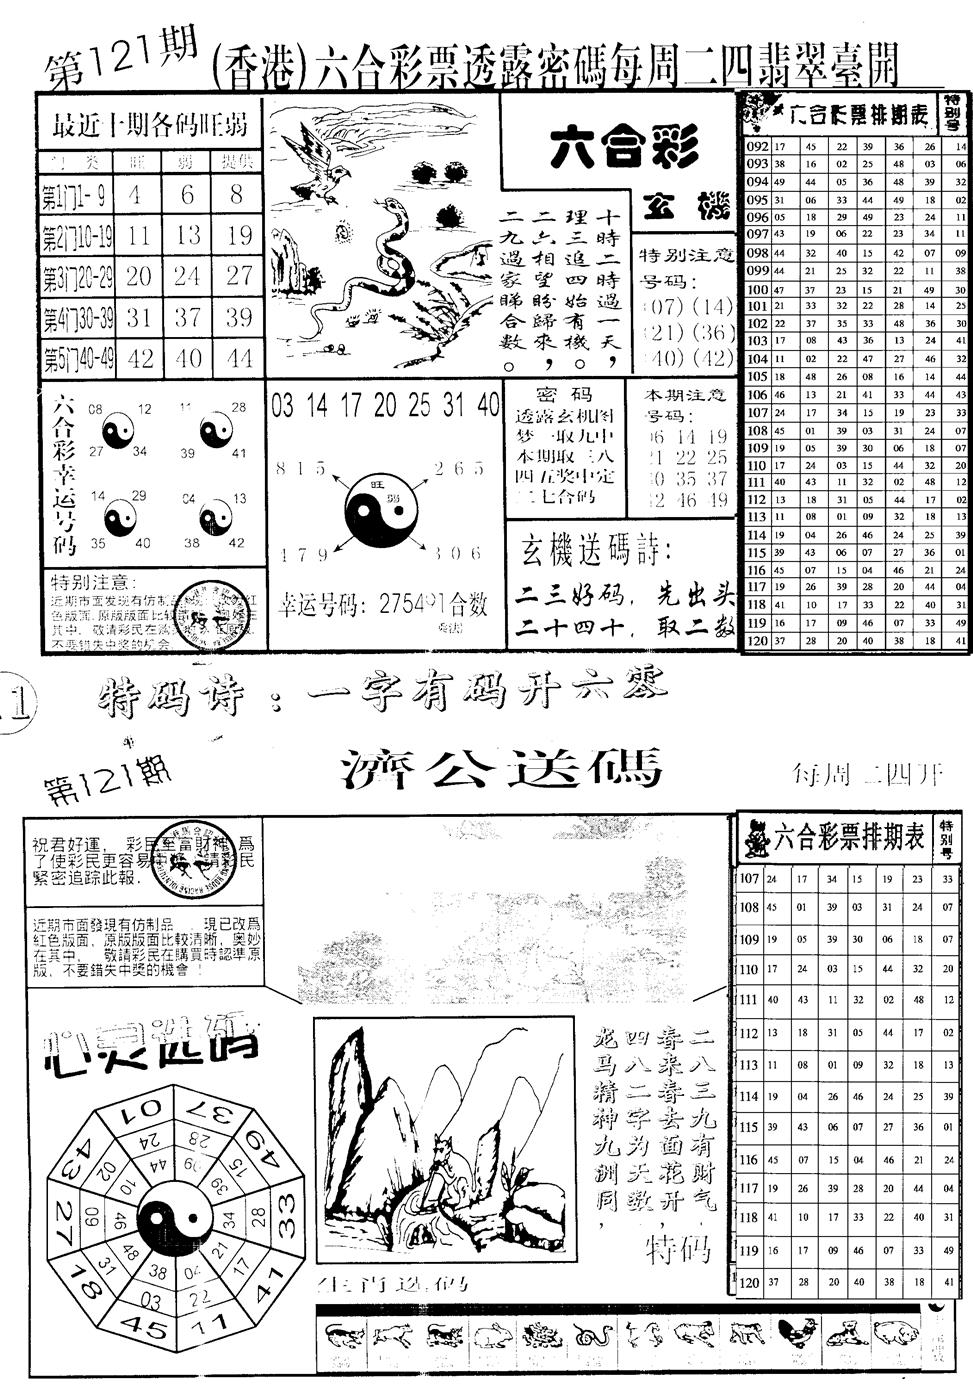 第121期
(香港)六合彩票透露密碼每周二四翡翠臺開
最近十期各码旺弱
门 类 旺 弱 提供
第1门1-9 4 6 8
第2门10-19 11 13 19
第3门20-29 20 24 27
第4门30-39 31 37 39
第5门40-49 42 40 44
六合彩
玄機
十時二時過一天,
理三追四始有機。
二六相望盼歸來,
二九過家睇合数。
特别注意
号码:
(07)(14)
(21)(36)
(40)(42)
六合彩幸运号码
08 12
27 34
11 28
39 41
14 29
35 40
04 13
38 42
03 14 17 20 25 31 40
815 265
旺
弱
479 306
幸运号码: 275491合数
密码
透露玄机图
梦一取九中
本期取三八
四五奖中定
二七合码
本期注意
号码:
06 14 19
21 22 25
30 35 37
42 46 49
玄機送碼詩:
二三好码, 先出头
二十四十, 取二数
特别注意:
不要错失中奖的机会
六合彩票排期表 特别号
092 17 45 22 39 36 26 14
093 38 16 02 25 48 03 06
094 49 44 05 36 48 39 32
095 31 06 33 44 49 18 02
096 05 18 29 49 23 24 11
097 43 19 06 22 23 34 11
098 44 32 40 15 42 07 09
099 44 21 25 32 22 11 38
100 47 37 23 15 21 49 30
101 21 33 32 22 28 14 25
102 22 37 35 33 48 36 30
103 17 08 43 36 13 24 41
104 11 02 22 47 27 46 32
105 18 48 26 08 16 14 44
106 46 13 21 41 33 44 43
107 24 17 34 15 19 23 33
108 45 01 39 03 31 24 07
109 19 05 39 30 06 18 07
110 17 24 03 15 44 32 20
111 40 43 11 32 02 48 12
112 13 18 31 05 44 17 02
113 11 08 01 09 32 18 13
114 19 04 26 46 24 25 39
115 39 43 06 07 27 36 01
116 45 07 15 04 46 21 24
117 19 26 39 28 20 44 04
118 41 10 17 33 22 40 31
119 16 17 09 46 07 33 49
120 37 28 20 40 38 18 41
特码诗:一字有码开六零
第121期
濟公送碼
每周二四开
祝君好運, 彩民至富財神爲
了使彩民更容易中獎, 請彩民
緊密追踪此報.
近期市面發現有仿制品 現已改爲
紅色版面, 原版版面比較清晰, 奧妙
在其中, 敬請彩民在購買時認準原
版, 不要錯失中獎的機會!
心灵选码
01 37 49 33 41 11 45 18 27 43
24 28 15 28 17 22 03 31 09 02
44 09 39 34 21 04 38 48 46 10
二八三九有財气.
春来春去面花开,
四八二字为天数
龙马精神九洲同,
特码
生肖选码
六合彩票排期表 特别号
107 24 17 34 15 19 23 33
108 45 01 39 03 31 24 07
109 19 05 39 30 06 18 07
110 17 24 03 15 44 32 20
111 40 43 11 32 02 48 12
112 13 18 31 05 44 17 02
113 11 08 01 09 32 18 13
114 19 04 26 46 24 25 39
115 39 43 06 07 27 36 01
116 45 07 15 04 46 21 24
117 19 26 39 28 20 44 04
118 41 10 17 33 22 40 31
119 16 17 09 46 07 33 49
120 37 28 20 40 38 18 41